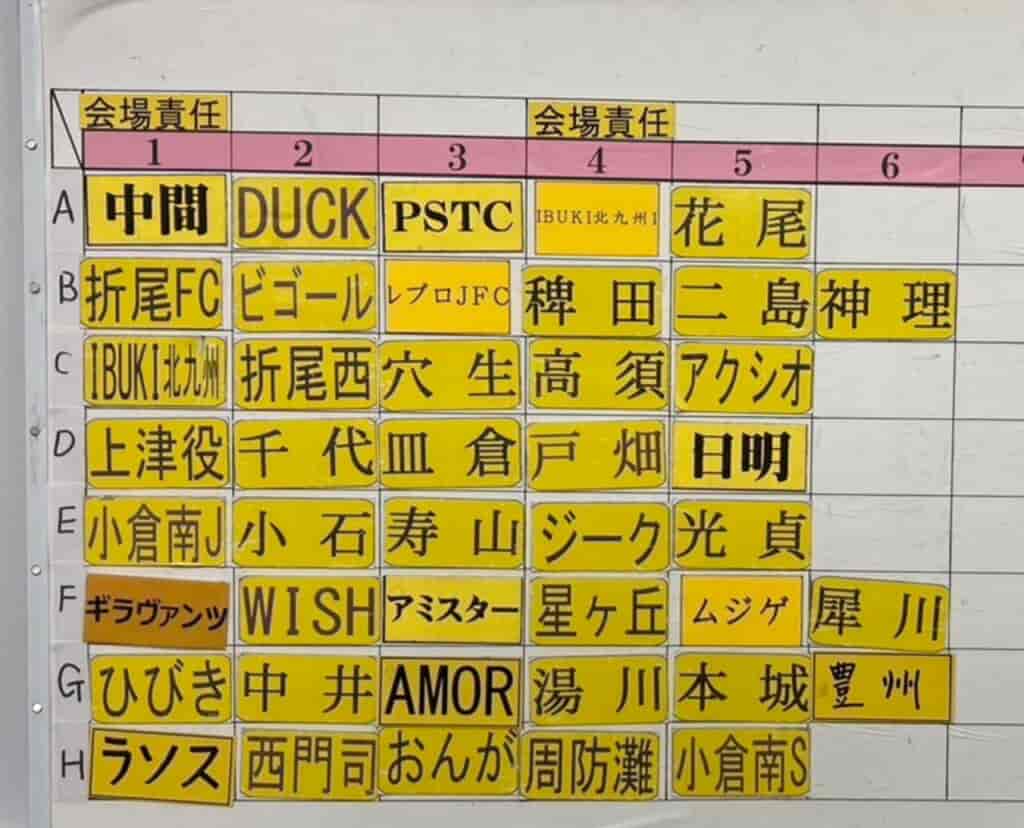 会場責任 会場責任
1 2 3 4 5 6
A 中間 DUCK PSTC IBUKI北九州1 花尾
B 折尾FC ビゴール レブロJFC 稗田 二島 神理
C IBUKI北九州 折尾西 穴生 高須 アクシオ
D 上津役 千代 皿倉 戸畑 日明
E 小倉南J 小石 寿山 ジーク 光貞
F ギラヴァンツ WISH アミスター 星ヶ丘 ムジゲ 犀川
G ひびき 中井 AMOR 湯川 本城 豊州
H ラソス 西門司 おんが 周防灘 小倉南S